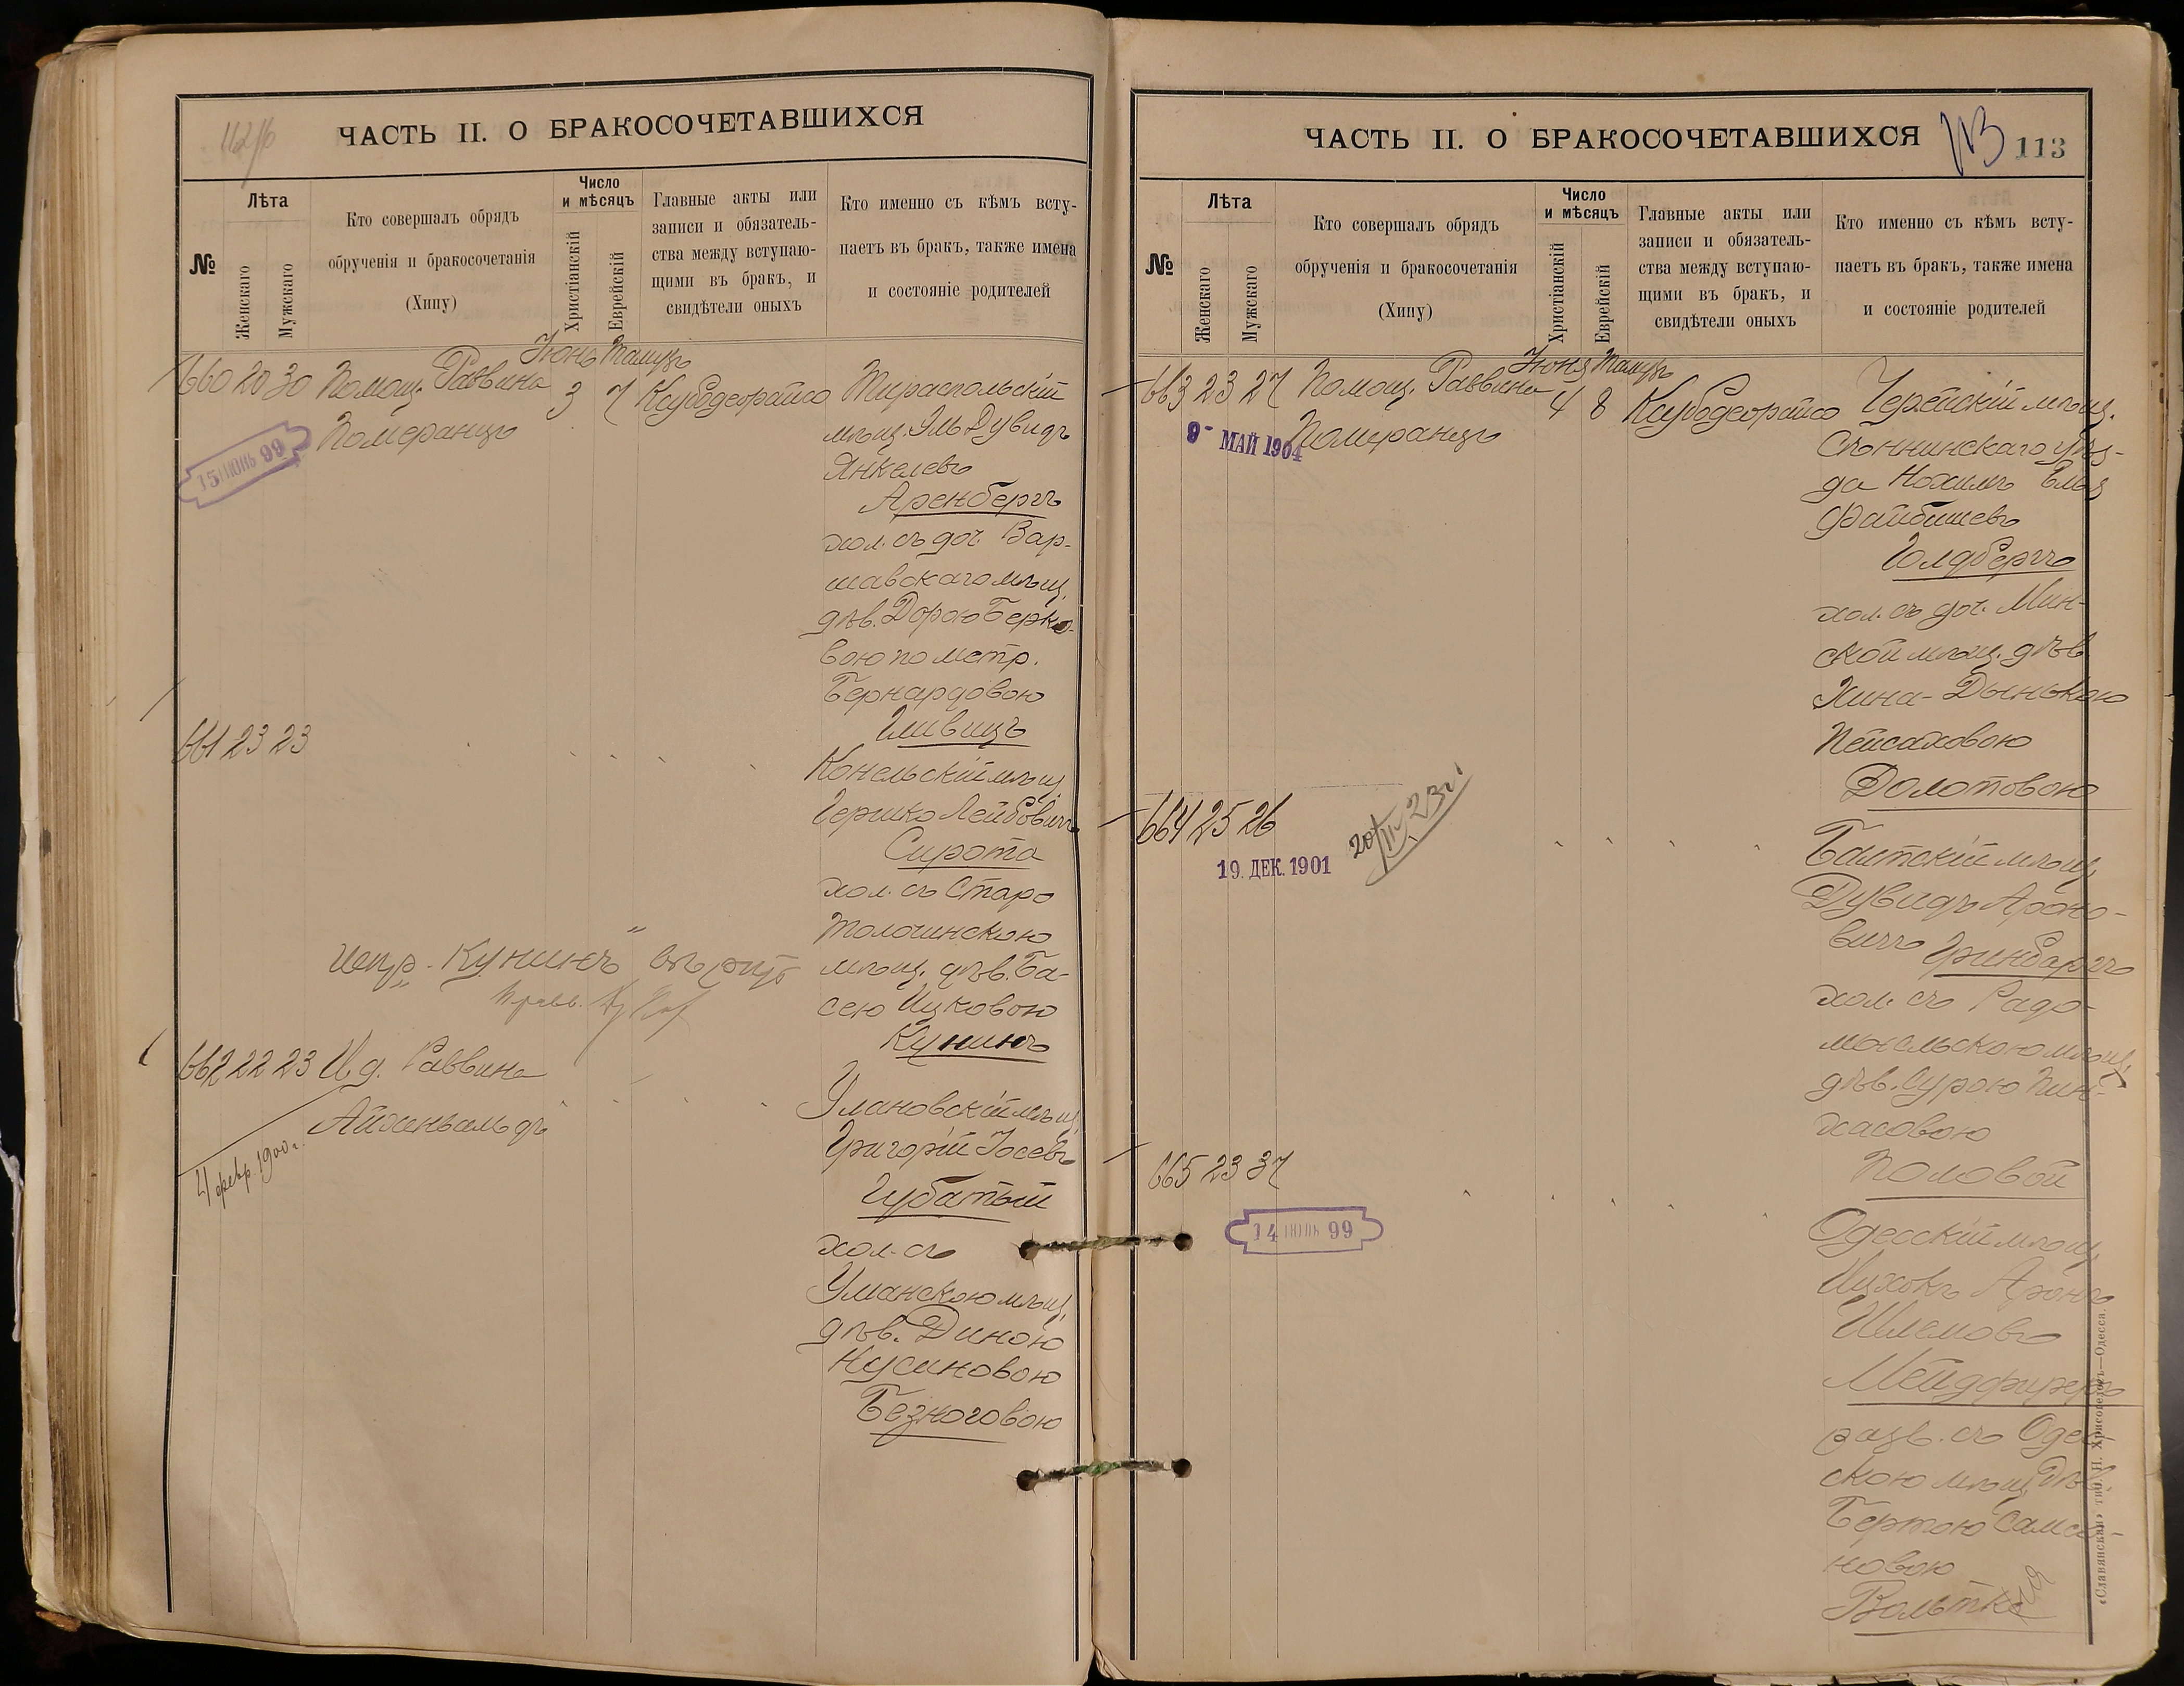 112/б
ЧАСТЬ II. О БРАКОСОЧЕТАВШИХСЯ
№
Лѣта
Женскаго
Мужскаго
Кто совершалъ обрядъ
обрученія и бракосочетанія
(Хипу)
Число
и мѣсяцъ
Христіанскій
Еврейскій
Главные акты или
записи и обязатель-
ства между вступаю-
щими въ бракъ, и
свидѣтели оныхъ
Кто именно съ кѣмъ всту-
паетъ въ бракъ, также имена
и состояніе родителей
660 20 30 Помощ. Раввина
Померанцъ
Іюнь Тамузъ
3 7 Ксубодеорайсо
15 ІЮНЬ 99
Тираспольскій
мѣщ. Эль Дувидъ
Янкелевъ
Аренбергъ
хол. съ доч. Вар-
шавскаго мѣщ.
дѣв. Дорою Берко-
вою по метр.
Бернардовою
Гливицъ
661 23 23
Конельскій мѣщ.
Гершко Лейбовичъ
Сирота
хол. съ Старо
Толочинскою
мѣщ. дѣв. Ба-
сею Ицковою
Кунинъ
испр. „Кунинъ" вѣрно
662 22 23 И д. Раввина
Айхенвальдъ
4 февр. 1900 г.
Улановскій мѣщ.
Григорій Іосевъ
Губатый
хол. съ
Уманскою мѣщ.
дѣв. Диною
Нусиновою
Безноговою
ЧАСТЬ II. О БРАКОСОЧЕТАВШИХСЯ
113 113
№
Лѣта
Женскаго
Мужскаго
Кто совершалъ обрядъ
обрученія и бракосочетанія
(Хипу)
Число
и мѣсяцъ
Христіанскій
Еврейскій
Главные акты или
записи и обязатель-
ства между вступаю-
щими въ бракъ, и
свидѣтели оныхъ
Кто именно съ кѣмъ всту-
паетъ въ бракъ, также имена
и состояніе родителей
663 23 27 Помощ. Раввина
Померанцъ
Іюня Тамузъ
4 8 Ксубодеорайсо
9- МАЙ 1904
Черейскій мѣщ.
Сѣннинскаго уѣз-
да Нохимъ Елья
Файбишевъ
Голдбергъ
хол. съ доч. Мин-
ской мѣщ. дѣв.
Хина-Дынькою
Пейсаховою
Долотовою
664 25 26
19. ДЕК. 1901
20/II 23 г.
Балтскій мѣщ.
Дувидъ Ароно-
вичъ Гринбаргъ
хол. съ Радо-
мысльскою мѣщ.
дѣв. Сурою Пин-
хасовою
Половой
665 23 37
14 ІЮНЬ 99
Одесскій мѣщ.
Ицхокъ Аронъ
Шлемовъ
Мейдфиреръ
разв. съ Одес-
скою мѣщ. дѣв.
Бертою Самсо-
новою
«Славянская» тип. Н. Хрисогелосъ—Одесса.